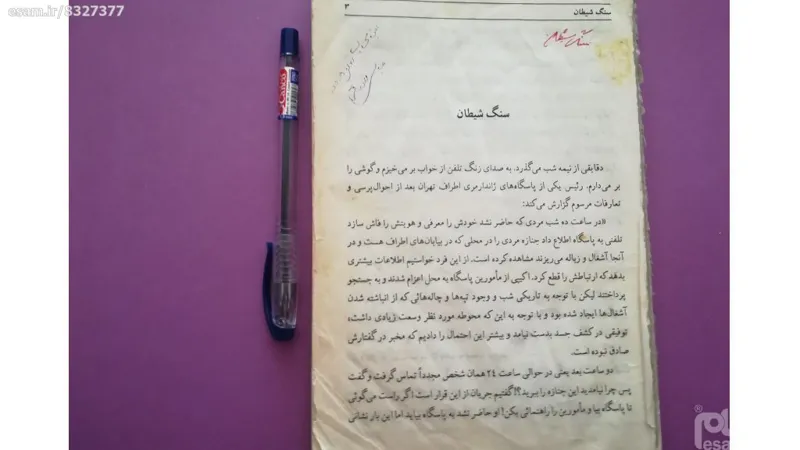 esam.ir/8327377
سنگ شیطان
۳
سنگ شیطان
سنگ شیطان
دقایقی از نیمه شب می‌گذرد. به صدای زنگ تلفن از خواب بر می‌خیزم و گوشی را
بر می‌دارم. رئیس یکی از پاسگاه‌های ژاندارمری اطراف تهران بعد از احوال‌پرسی و
تعارفات مرسوم گزارش می‌کند:
«در ساعت ده شب مردی که حاضر نشد خودش را معرفی و هویتش را فاش سازد
تلفنی به پاسگاه اطلاع داد جنازه مردی را در محلی که در بیابان‌های اطراف هست و در
آنجا آشغال و زباله می‌ریزند مشاهده کرده است. از این فرد خواستیم اطلاعات بیشتری
بدهد که ارتباطش را قطع کرد. اکیپی از مأمورین پاسگاه به محل اعزام شدند و به جستجو
پرداختند لیکن با توجه به تاریکی شب و وجود تپه‌ها و چاله‌هائی که از انباشته شدن
آشغال‌ها ایجاد شده بود و با توجه به این که محوطه مورد نظر وسعت زیادی داشت،
توفیقی در کشف جسد بدست نیامد و بیشتر این احتمال را دادیم که مخبر در گفتارش
صادق نبوده است.
دو ساعت بعد یعنی در حوالی ساعت ۲۴ همان شخص مجدداً تماس گرفت و گفت
پس چرا نیامدید این جنازه را ببرید؟! گفتیم جریان از این قرار است اگر راست می‌گوئی
تا پاسگاه بیا و مأمورین را راهنمائی بکن! او حاضر نشد به پاسگاه بیاید اما این بار نشانی
Canco
esam